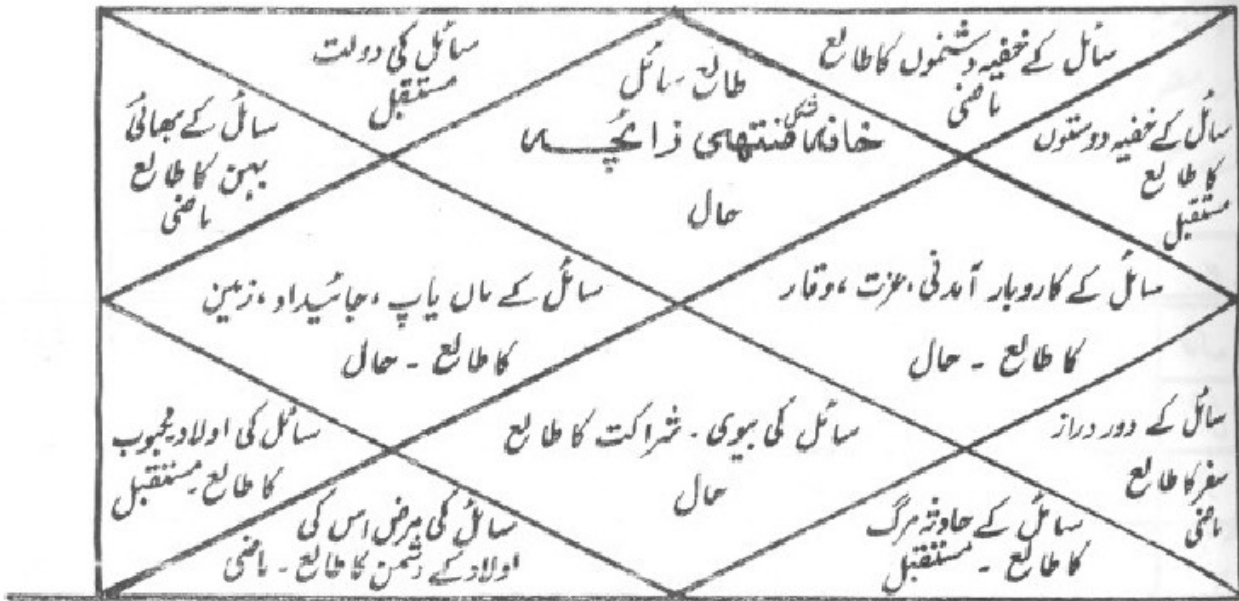 سائل کے خفیہ دشمنوں کا طالع
ماضی
سائل کی دولت
مستقبل
طالع سائل
خانہ شکل منتہی زائچہ
حال
سائل کے خفیہ دوستوں
کا طالع
مستقبل
سائل کے بھائی
بہن کا طالع
ماضی
سائل کے کاروبار آمدنی، عزت، وقار
کا طالع - حال
سائل کے ماں باپ، جائیداد، زمین
کا طالع - حال
سائل کے دور دراز
سفر کا طالع
ماضی
سائل کی بیوی - شراکت کا طالع
حال
سائل کی اولاد محبوب
کا طالع - مستقبل
سائل کے حادثہ مرگ
کا طالع - مستقبل
سائل کی مرض اس کی
اولاد کے دشمن کا طالع - ماضی